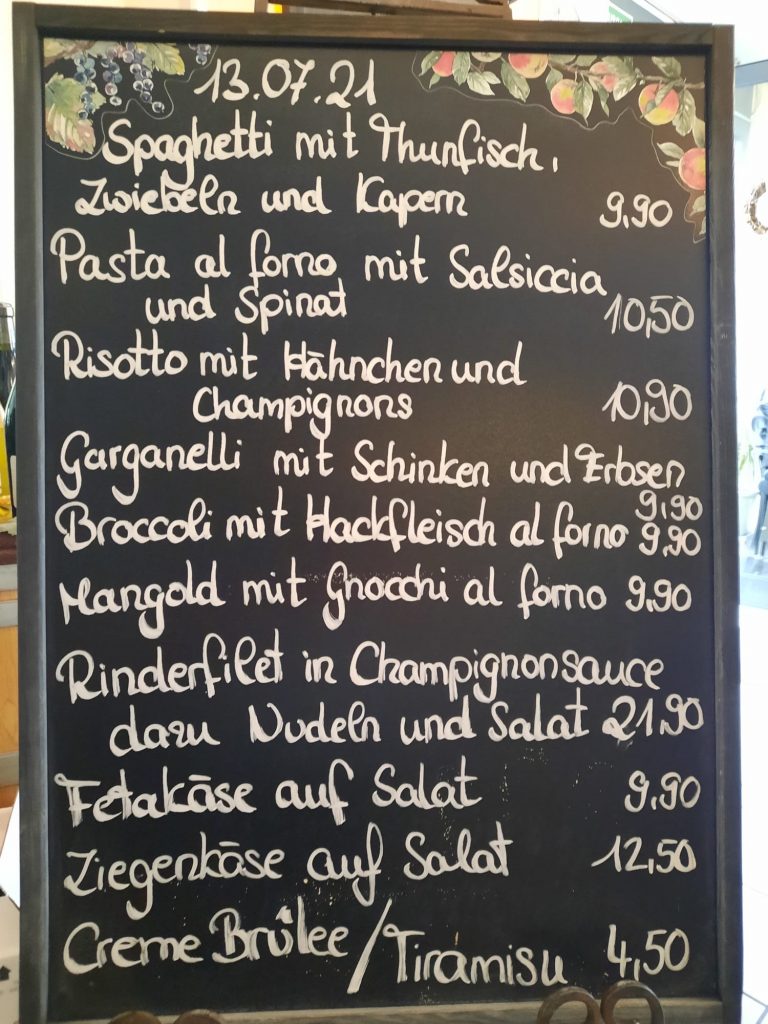 13.07.21
Spaghetti mit Thunfisch,
Zwiebeln und Kapern 9,90
Pasta al forno mit Salsiccia
und Spinat 10,50
Risotto mit Hähnchen und
Champignons 10,90
Garganelli mit Schinken und Erbsen
9,90
Broccoli mit Hackfleisch al forno 9,90
Mangold mit Gnocchi al forno 9,90
Rinderfilet in Champignonsauce
dazu Nudeln und Salat 21,90
Fetakäse auf Salat 9,90
Ziegenkäse auf Salat 12,50
Creme Brûlee/Tiramisu 4,50